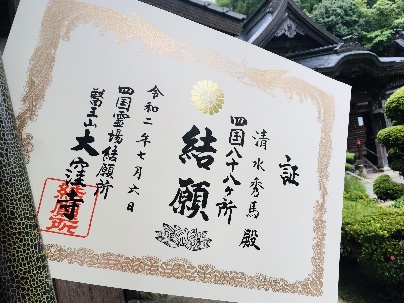 証
清水秀馬殿
四国八十八ヶ所
結願
令和二年七月六日
四国霊場結願所
醫王山大窪寺
結願所